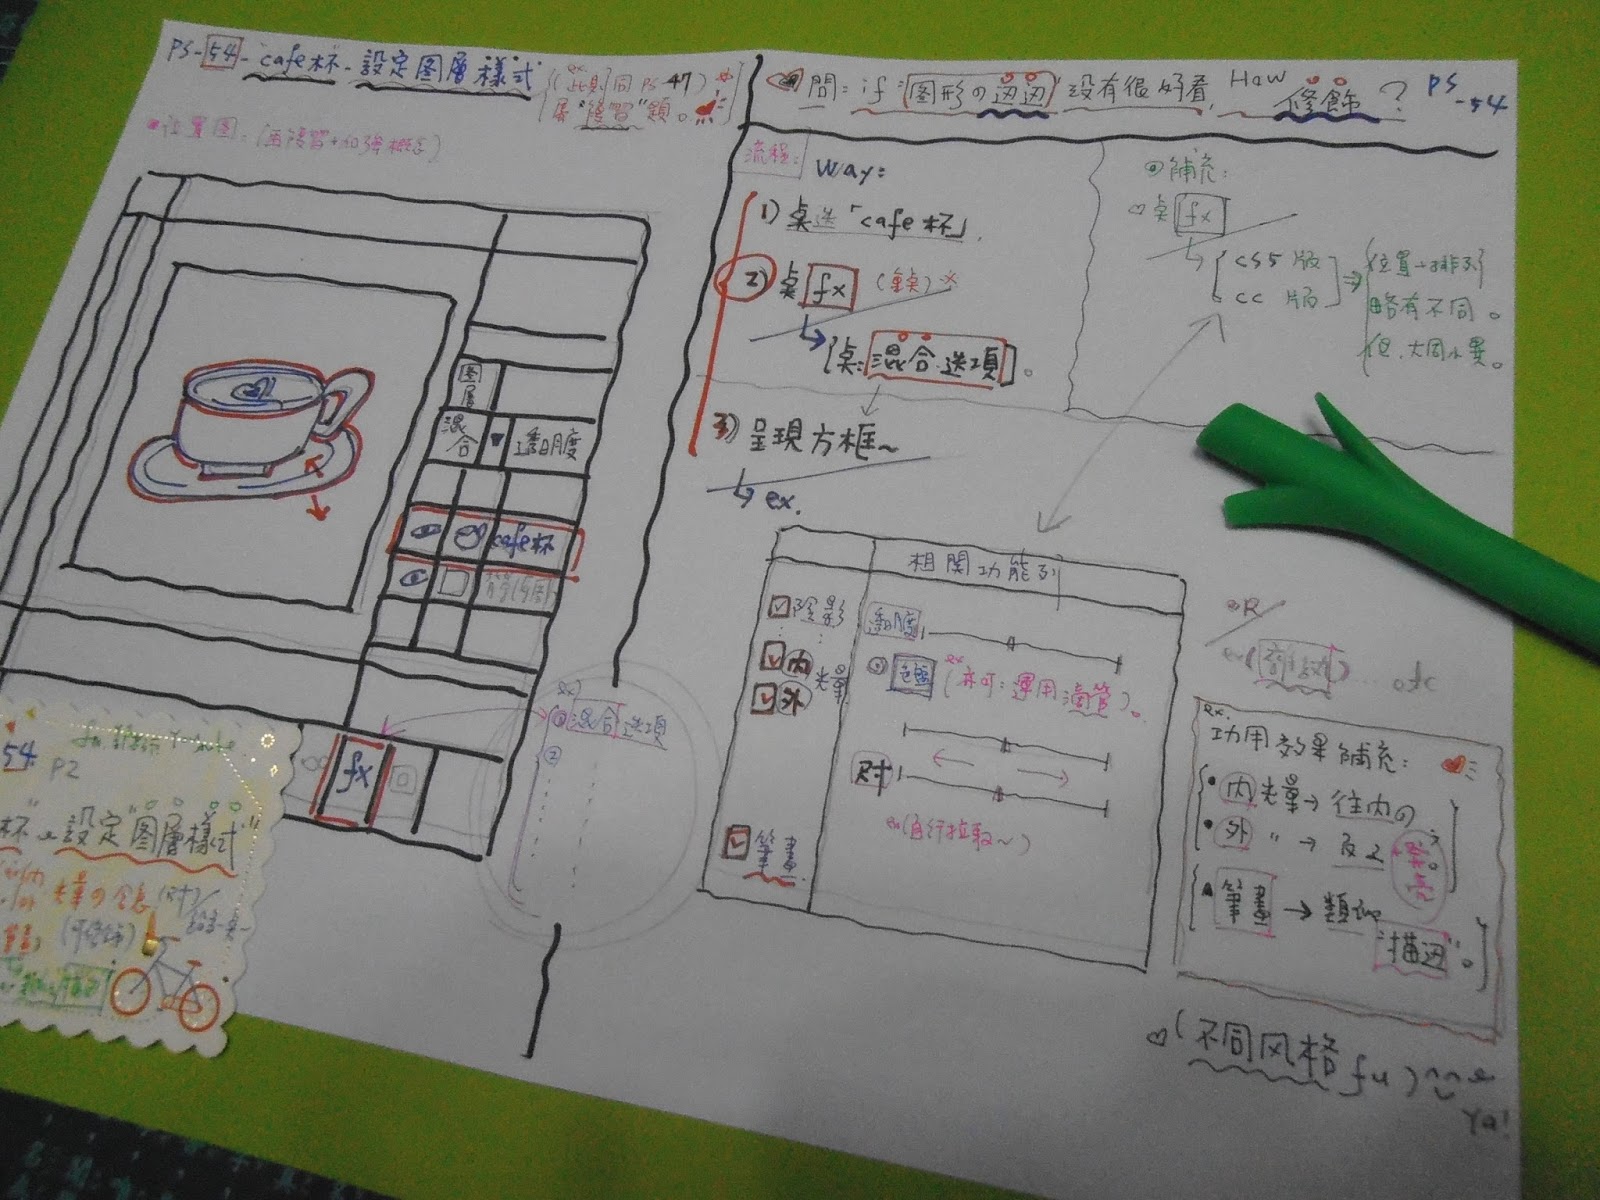 PS-54-cafe杯-設定图層樣式
(此題同PS 47)
屬"複習"題。
位置图:(再複習+加強概念)
图層
混合 透明度
cafe杯
背景
fx
混合选項
問:if:图形の边边 没有很好看, How 修飾?
PS-54
流程: Way:
1) 桌选「cafe杯」.
2) 桌 fx
[桌:混合选項]。
3) 呈現方框~
ex.
補充:
桌 fx
CS5 版
CC 版
位置+排列
略有不同。
但,大同小異。
相関功能列
陰影
内
外
光暈
筆畫
透明度
色塊
(亦可:運用滴管)。
尺寸
(自行拉取~)
R
...etc
ex.
功用效果補充:
内 光暈→往内の
外 " →反之
筆畫→類似
"描边"。
(不同风格fu)~~
Ya!
54
P2
杯"設定"图層樣式"